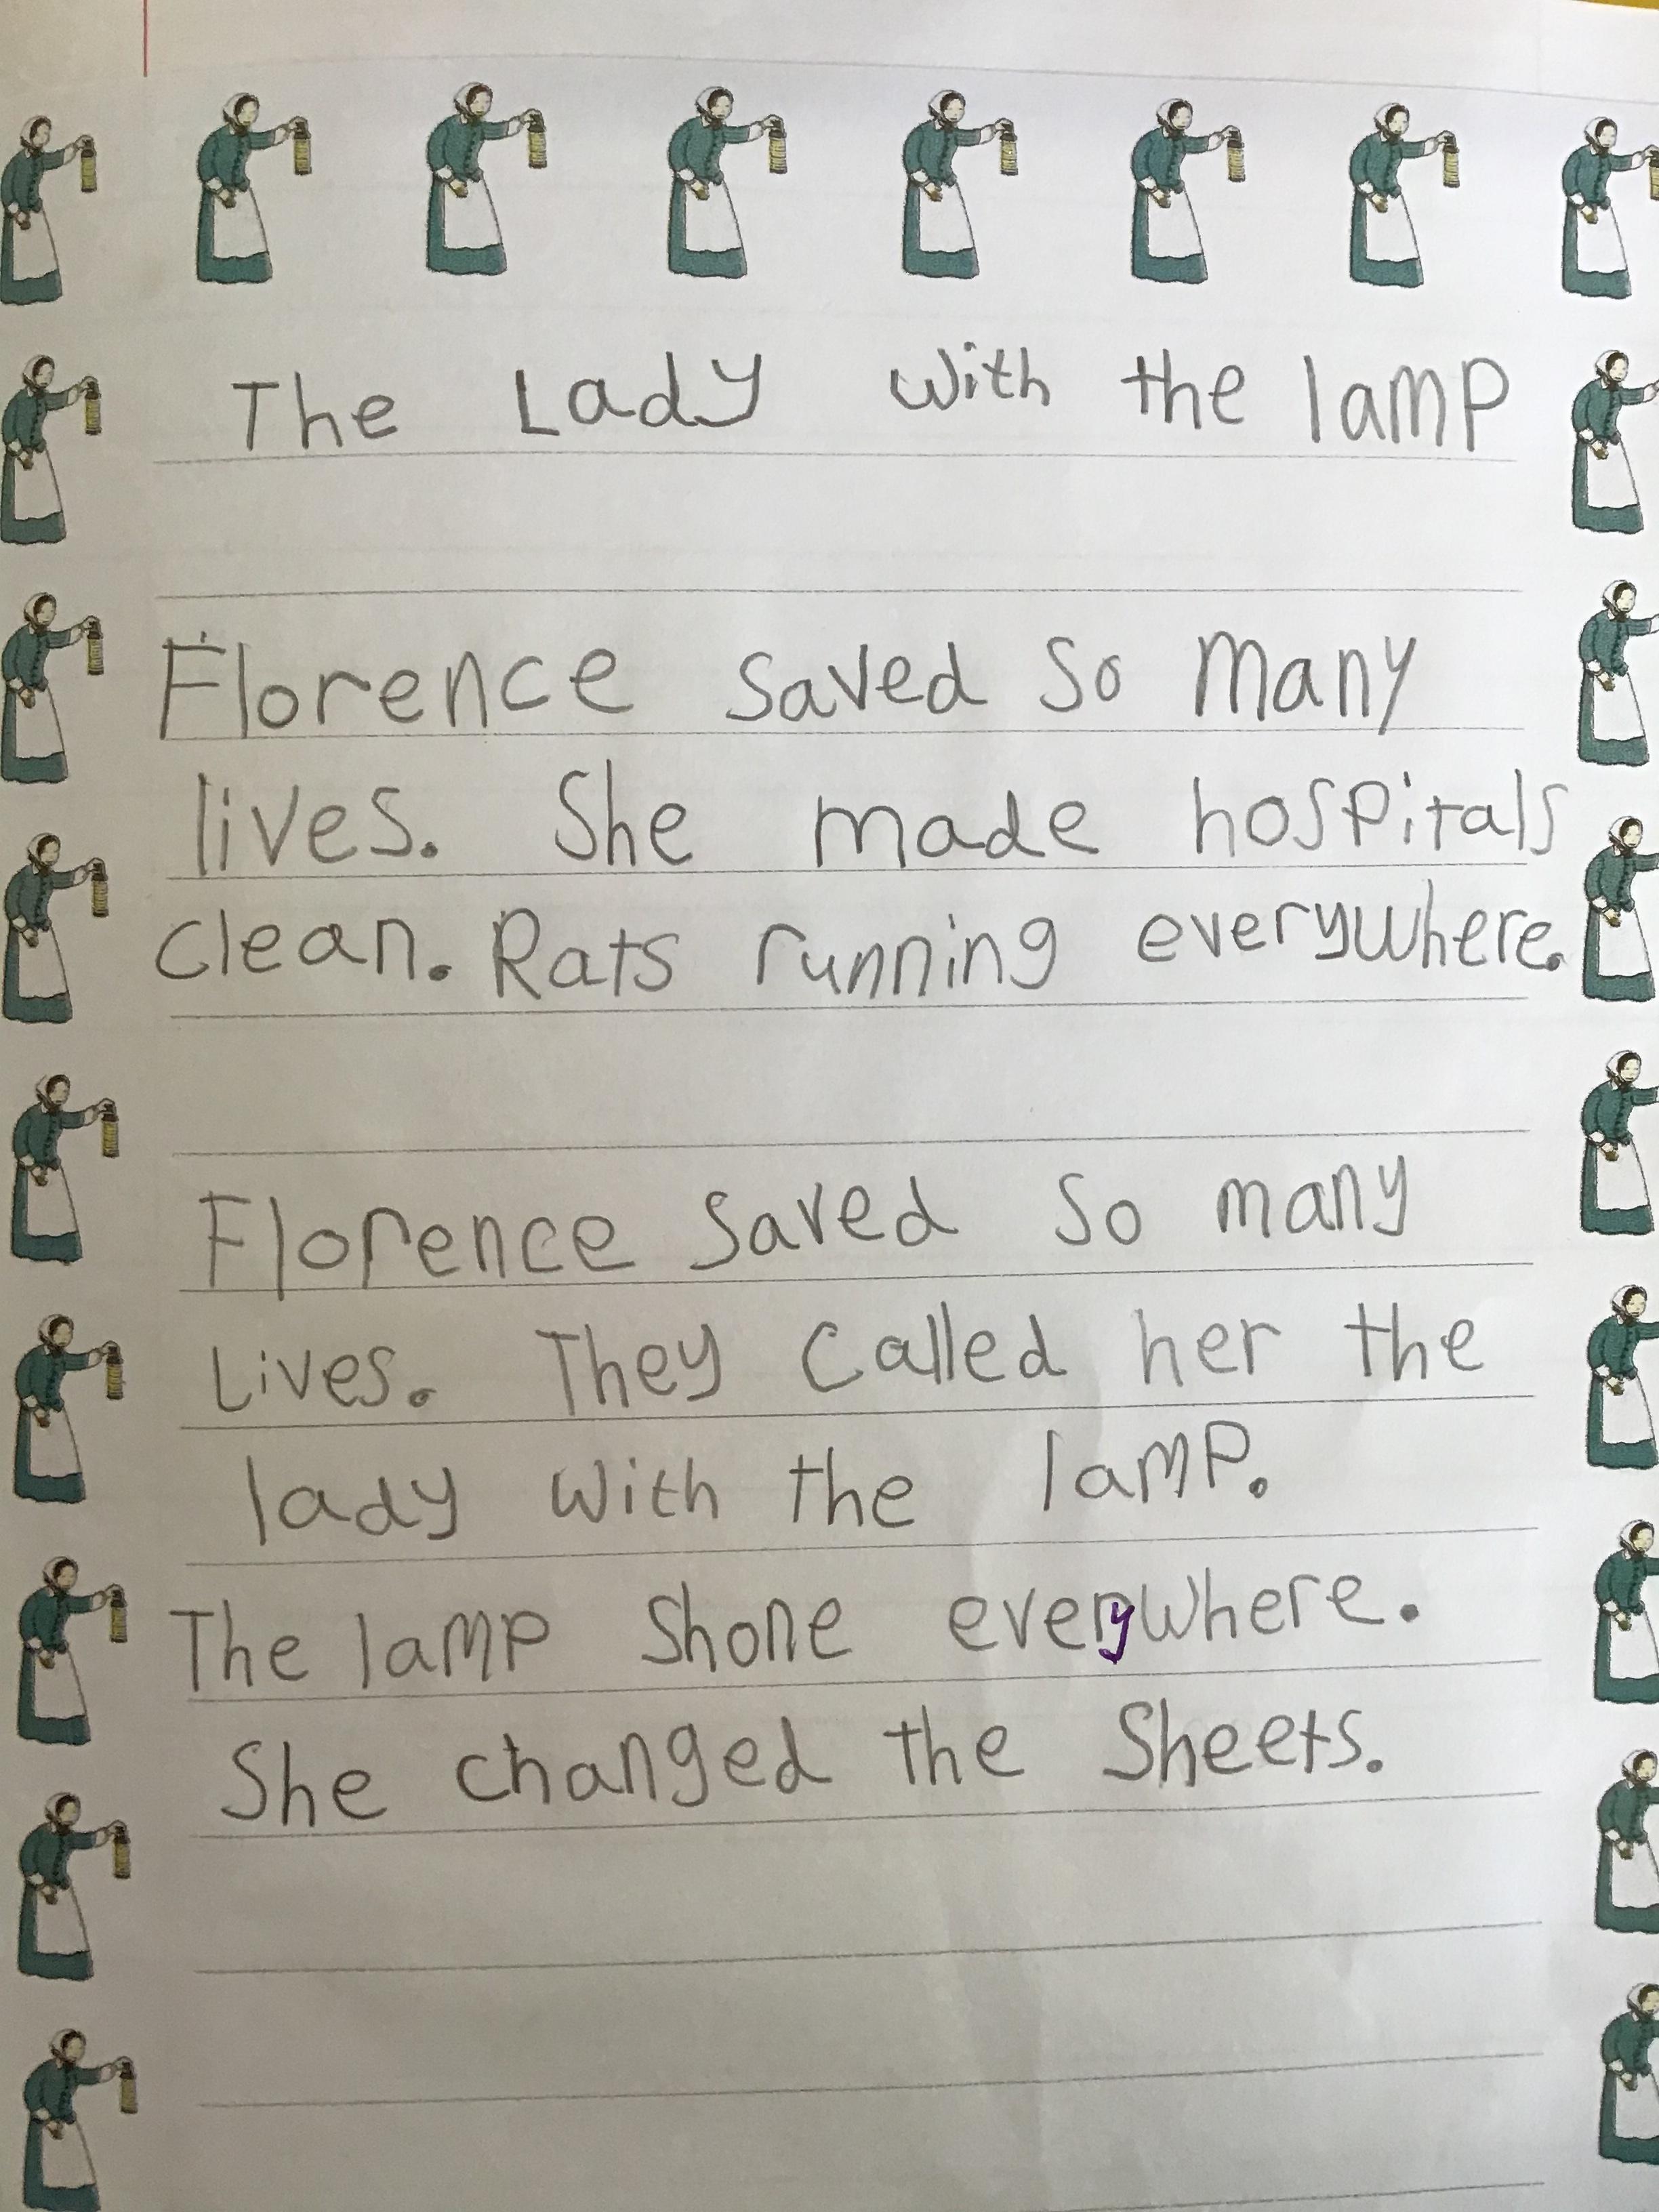 The Lady with the lamp
Florence saved so many
lives. She made hospitals
clean. Rats running everywhere.
Florence saved so many
Lives. They called her the
lady with the lamp.
The lamp shone everywhere.
She changed the Sheets.